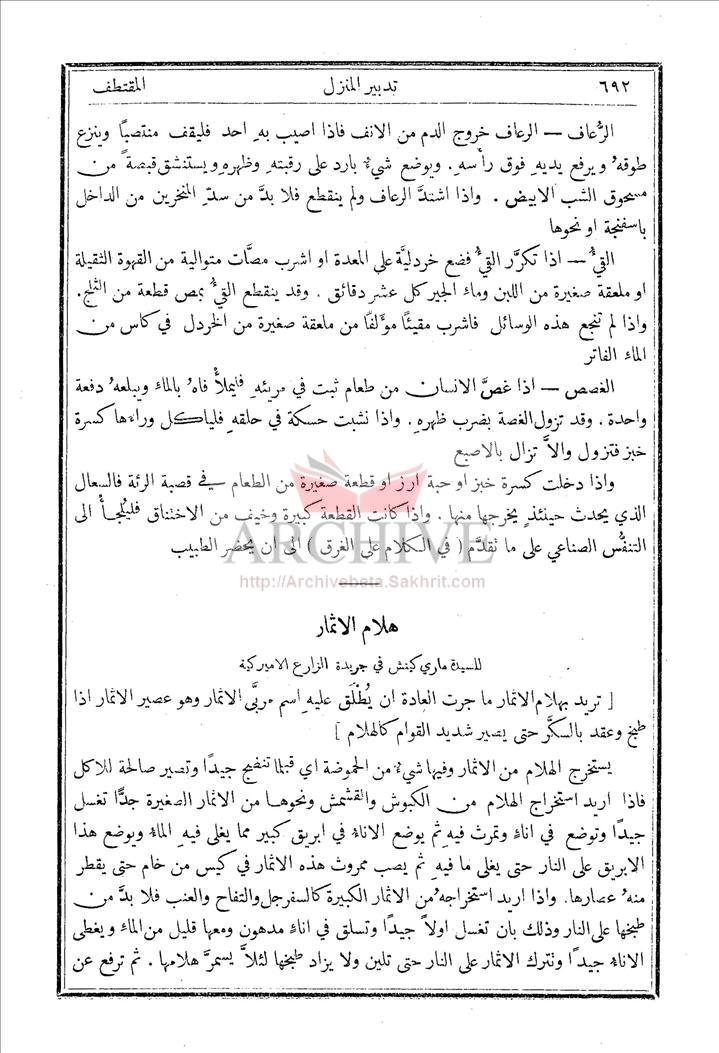 ٦٩٢ تدبير المنزل المقتطف
الرُّعاف — الرعاف خروج الدم من الانف فاذا اصيب بهِ احد فليقف منتصبًا وينزع
طوقهُ ويرفع يديهِ فوق رأسهِ . ويوضع شيءٌ بارد على رقبتهِ وظهرهِ ويستنشق قبصة من
مسحوق الشب الابيض . واذا اشتدَّ الرعاف ولم ينقطع فلا بدَّ من سدّ المنخرين من الداخل
باسفنجة او نحوها
القيءُ — اذا تكرَّر القيءُ فضع خردليَّة على المعدة او اشرب مصَّات متوالية من القهوة الثقيلة
او ملعقة صغيرة من اللبن وماء الجير كل عشر دقائق . وقد ينقطع القيءُ بمص قطعة من الثلج.
واذا لم تنجع هذه الوسائل فاشرب مقيئًا مؤلفًا من ملعقة صغيرة من الخردل في كاس من
الماء الفاتر
الغصص — اذا غصَّ الانسان من طعام ثبت في مريئهِ فليملأْ فاهُ بالماء ويبلعهُ دفعة
واحدة . وقد تزول الغصة بضرب ظهرهِ . واذا نشبت حسكة في حلقهِ فلياكل وراءها كسرة
خبز فتزول والاَّ تزال بالاصبع
واذا دخلت كسرة خبز او حبة ارز او قطعة صغيرة من الطعام في قصبة الرئة فالسعال
الذي يحدث حينئذٍ يخرجها منها . واذا كانت القطعة كبيرة وخيف من الاختناق فليُلجأْ الى
التنفُّس الصناعي على ما تقدَّم ( في الكلام على الغرق ) الى ان يحضر الطبيب
ARCHIVE
http://Archivebeta.Sakhrit.com
هلام الاثمار
للسيدة ماري كينش في جريدة الزارع الاميركية
[ نريد بهلام الاثمار ما جرت العادة ان يُطْلَق عليهِ اسم مربَّى الاثمار وهو عصير الاثمار اذا
طبخ وعقد بالسكَّر حتى يصير شديد القوام كالهلام ]
يستخرج الهلام من الاثمار وفيها شيءٌ من الحموضة اي قبلما تنضج جيدًا وتصير صالحة للاكل
فاذا اريد استخراج الهلام من الكبوش والقشمش ونحوها من الاثمار الصغيرة جدًّا تغسل
جيدًا وتوضع في اناءٍ وتمرث فيهِ ثم يوضع الاناءُ في ابريق كبير مما يغلى فيهِ الماءُ ويوضع هذا
الابريق على النار حتى يغلى ما فيهِ ثم يصب ممروث هذه الاثمار في كيس من خام حتى يقطر
منهُ عصارها. واذا اريد استخراجهُ من الاثمار الكبيرة كالسفرجل والتفاح والعنب فلا بدَّ من
طبخها على النار وذلك بان تغسل اولاً جيدًا وتسلق في اناءٍ مدهون ومعها قليل من الماء ويغطى
الاناءُ جيدًا وتترك الاثمار على النار حتى تلين ولا يزاد طبخها لئلاَّ يسمرَّ هلامها . ثم ترفع عن